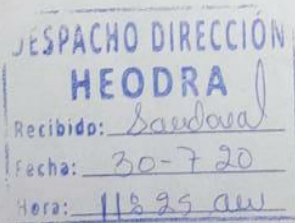 DESPACHO DIRECCIÓN
HEODRA
Recibido: Sandoval
Fecha: 30-7-20
Hora: 11:25 am